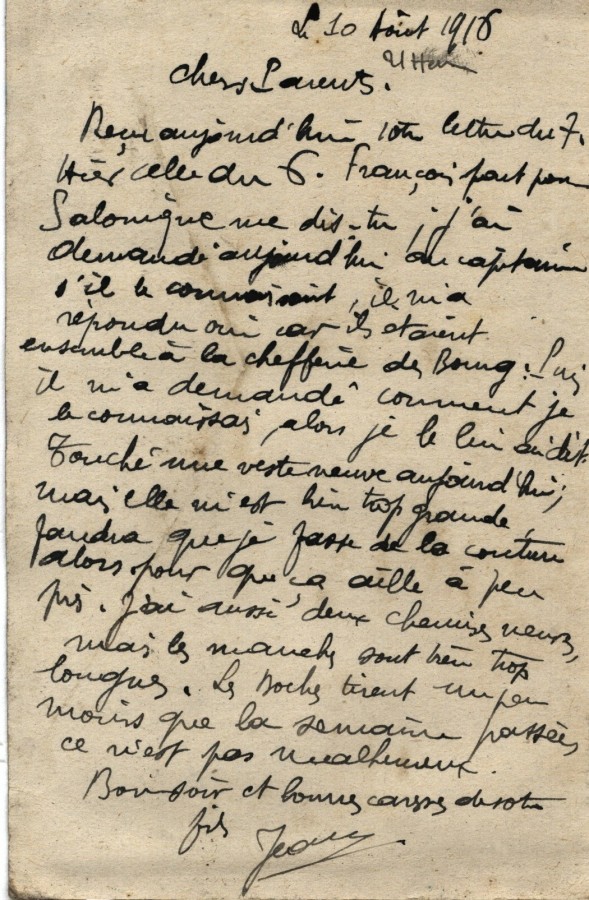 Le 10 Août 1916
21 H
Chers Parents.
Reçu aujourd'hui votre lettre du 7.
Hier celle du 6. François part pour
Salonique me dis-tu ; j'ai
demandé aujourd'hui au capitaine
s'il le connaissait, il m'a
répondu oui car ils étaient
ensemble à la chefferie de Bourg. Puis
il m'a demandé comment je
le connaissais, alors je le lui ai dit.
Touché une veste neuve aujourd'hui,
mais elle m'est bien trop grande,
faudra que je fasse de la couture
alors pour que ça aille à peu
près. J'ai aussi deux chemises neuves,
mais les manches sont bien trop
longues. Les Boches tirent un peu
moins que la semaine passée,
ce n'est pas malheureux.
Bonsoir et bonnes caresses de votre
fils
Jean